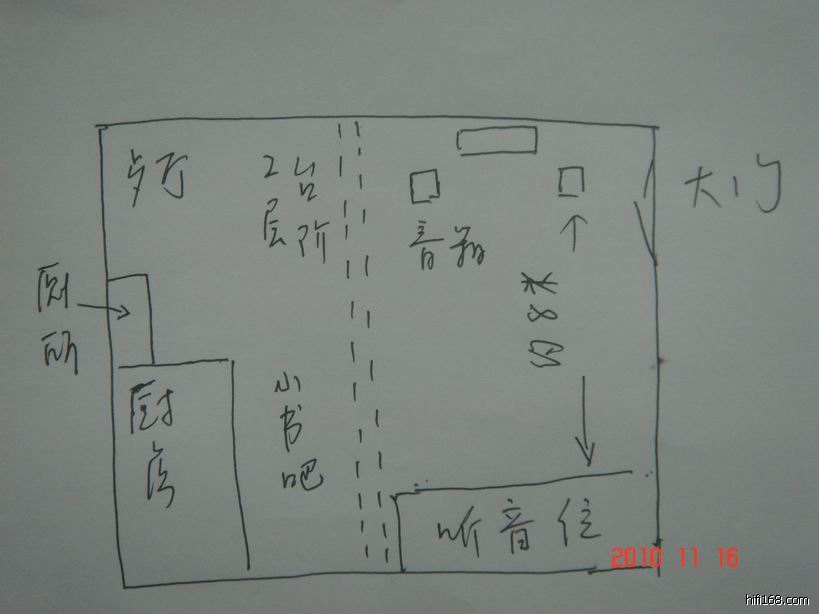 2层
台阶
音箱
大门
厕所
约8米
厨房
小书吧
听音位
2010 11 16
hifi168.com